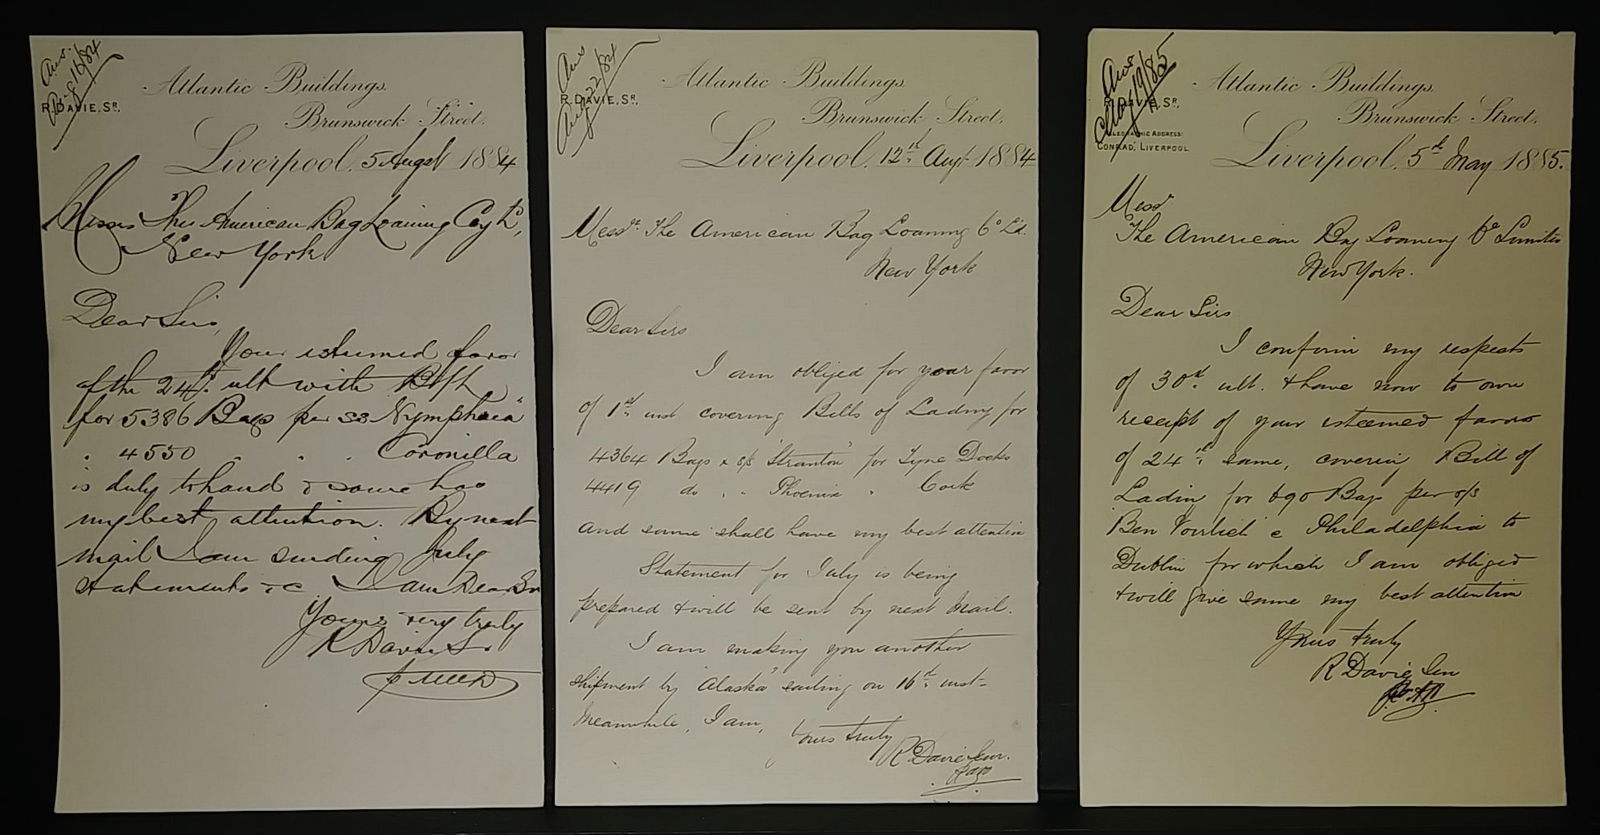 Ans.
Aug 16/84
R. DAVIE, SR.
Atlantic Buildings.
Brunswick Street.
Liverpool, 5 Augst 1884
Messrs The American Bag Loaning Coy Ld,
New York
Dear Sirs,
Your esteemed favor
of the 24th ult with B/L
for 5386 Bags per ss Nymphaea"
" 4550 " " " Coronilla
is duly to hand & same has
my best attention. By next
mail I am sending July
statements &c I am Dear Sirs
Yours very truly
R Davie Sr
Ans
Aug 22/84
R. DAVIE, SR.
Atlantic Buildings.
Brunswick Street.
Liverpool, 12th Augt 1884
Messrs. The American Bag Loaning Co Ld.
New York
Dear Sirs
I am obliged for your favor
of 1st inst covering Bills of Lading for
4364 Bags x s/s "Stranton" for Tyne Docks
4419 do " " Phoenix " Cork
and same shall have my best attention
Statement for July is being
prepared & will be sent by next Mail.
I am making you another
shipment by "Alaska" sailing on 16th inst-
Meanwhile, I am,
Yours truly
R Davie Senr.
Ans
May 19/85
R. DAVIE, SR.
TELEGRAPHIC ADDRESS:
CONRAD, LIVERPOOL.
Atlantic Buildings.
Brunswick Street.
Liverpool, 5th May 1885.
Messrs
The American Bag Loaning Co Limited
New York.
Dear Sirs
I confirm my respects
of 30th ult. & have now to own
receipt of your esteemed favor
of 24th same, covering Bill of
Lading for 690 Bags per s/s
Ben Voirlich e Philadelphia to
Dublin for which I am obliged
& will give same my best attention
Yours truly
R Davie Sen